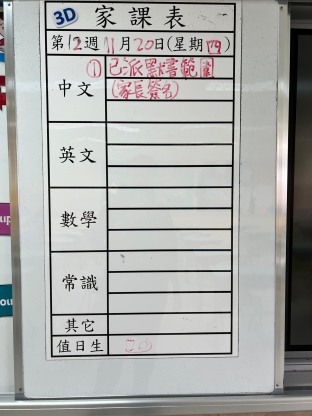 3D 家課表
第12週 11月20日(星期四)
中文 ① 已派默書範圍
(家長簽名)
英文
數學
常識
其它
值日生 20